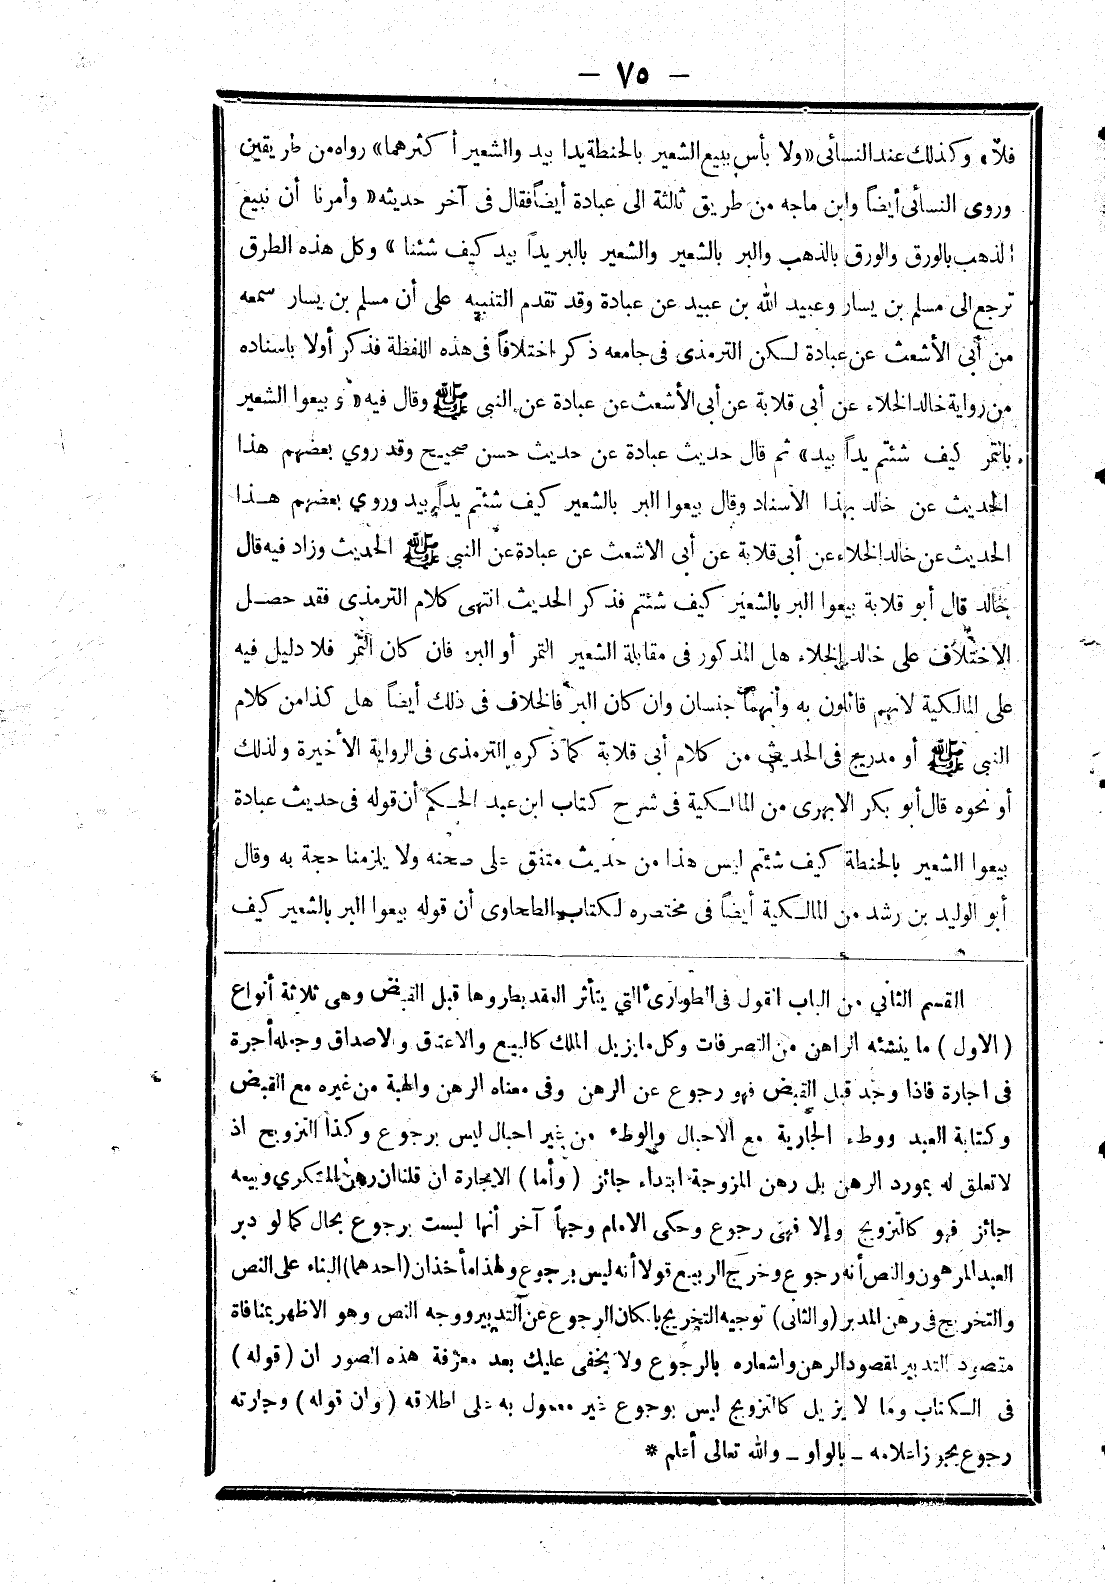 — ٧٥ —
فلا» وكذلك عند النسائى «ولا بأس ببيع الشعير بالحنطة يدا بيد والشعير أكثرهما» رواه من طريقين
وروى النسائى أيضاً وابن ماجه من طريق ثالثة الى عبادة أيضاً فقال فى آخر حديثه «وأمرنا أن نبيع
الذهب بالورق والورق بالذهب والبر بالشعير والشعير بالبر يداً بيد كيف شئنا» وكل هذه الطرق
ترجع الى مسلم بن يسار وعبيد الله بن عبيد عن عبادة وقد تقدم التنبيه على أن مسلم بن يسار سمعه
من أبى الأشعث عن عبادة لكن الترمذى فى جامعه ذكر اختلافاً فى هذه اللفظة فذكر أولا باسناده
من رواية خالد الحذاء عن أبى قلابة عن أبى الأشعث عن عبادة عن النبى ﷺ وقال فيه «وبيعوا الشعير
بالتمر كيف شئتم يداً بيد» ثم قال حديث عبادة عن حديث حسن صحيح وقد روي بعضهم هذا
الحديث عن خالد بهذا الأسناد وقال بيعوا البر بالشعير كيف شئتم يداً بيد وروي بعضهم هذا
الحديث عن خالد الحذاء عن أبى قلابة عن أبى الاشعث عن عبادة عن النبى ﷺ الحديث وزاد فيه قال
خالد قال أبو قلابة بيعوا البر بالشعير كيف شئتم فذكر الحديث انتهى كلام الترمذى فقد حصل
الاختلاف على خالد الحذاء هل المذكور فى مقابلة الشعير التمر أو البر: فان كان التمر فلا دليل فيه
على المالكية لانهم قائلون به وأنهما جنسان وان كان البر فالخلاف فى ذلك أيضاً هل كذا من كلام
النبى ﷺ أو مدرج فى الحديث من كلام أبى قلابة كما ذكره الترمذى فى الرواية الأخيرة ولذلك
أو نحوه قال أبو بكر الابهرى من المالكية فى شرح كتاب ابن عبد الحكم أن قوله فى حديث عبادة
بيعوا الشعير بالحنطة كيف شئتم ليس هذا من حديث متفق على صحته ولا يلزمنا حجة به وقال
أبو الوليد بن رشد من المالكية أيضاً فى مختصره لكتاب الطحاوى أن قوله بيعوا البر بالشعير كيف
القسم الثاني من الباب القول فى الطوارئ التي يتأثر العقد بطروها قبل القبض وهى ثلاثة أنواع
(الاول) ما ينشئه الراهن من التصرفات وكل ما يزيل الملك كالبيع والاعتاق والاصداق وجعله أجرة
فى اجارة فاذا وجد قبل القبض فهو رجوع عن الرهن وفى معناه الرهن والهبة من غيره مع القبض
وكتابة العبد ووطء الجارية مع الاحبال والوطء من غير احبال ليس برجوع وكذا التزويج اذ
لا تعلق له بمورد الرهن بل رهن المزوجة ابتداء جائز (وأما) الاجارة ان قلنا ان رهن المكري وبيعه
جائز فهو كالتزويج وإلا فهى رجوع وحكى الامام وجهاً آخر أنها ليست برجوع بحال كما لو دبر
العبد المرهون والنص أنه رجوع وخرج الربيع قولا أنه ليس برجوع ولهذا مأخذان (احدهما) البناء على النص
والتخريج فى رهن المدبر (والثانى) توجيه التخريج بامكان الرجوع عن التدبير ووجه النص وهو الاظهر بمنافاة
مقصود التدبير لمقصود الرهن واشعاره بالرجوع ولا يخفى عليك بعد معرفة هذه الصور ان (قوله)
فى الكتاب وما لا يزيل كالتزويج ليس برجوع غير معمول به على اطلاقه (وان قوله) وجارته
رجوع يجوز اعلامه ـ بالواو ـ والله تعالى أعلم *